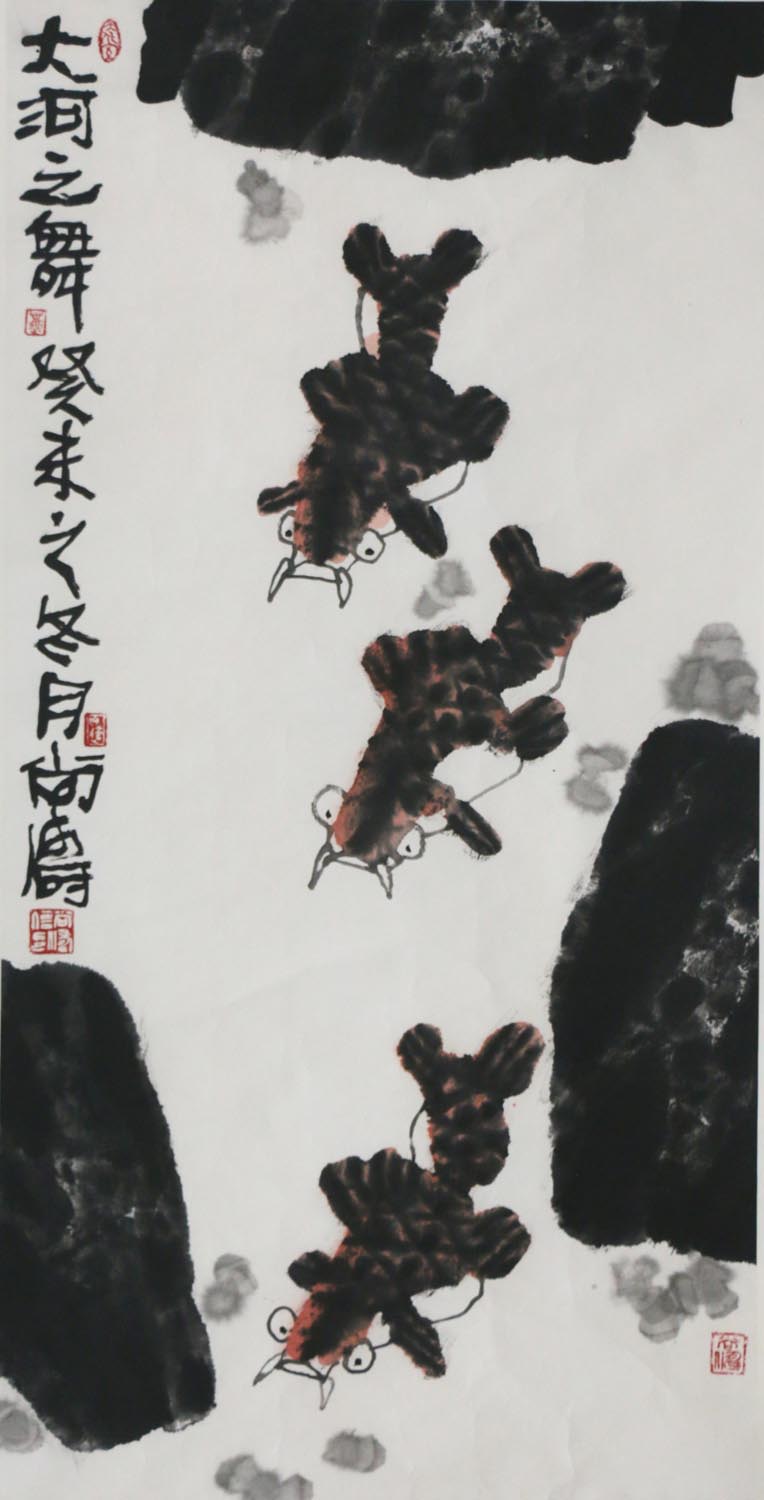 大河之舞癸未之冬月尚濤